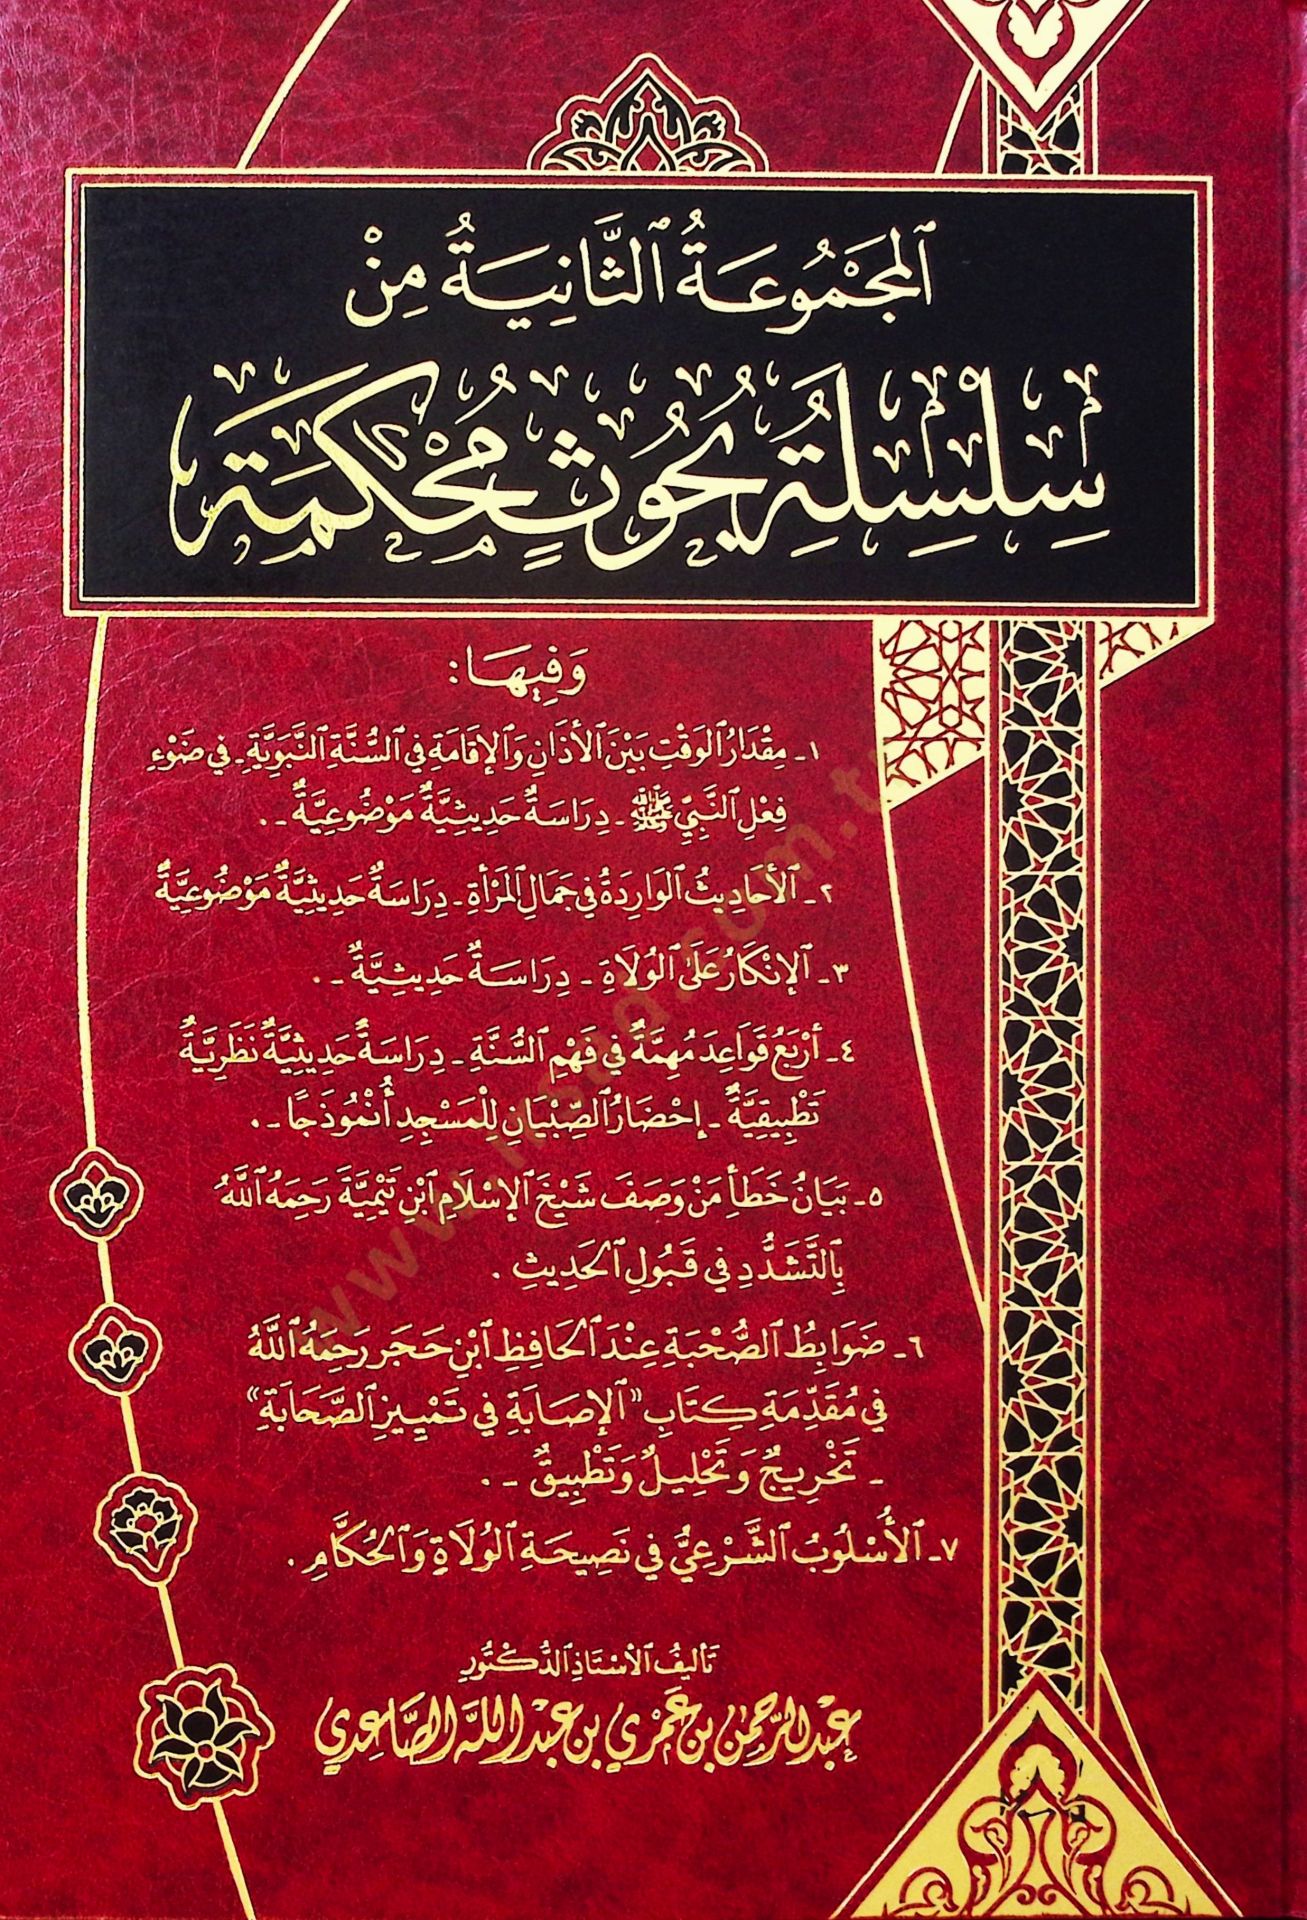 اَلمَجْمُوعَةُ الثَّانِيَةُ مِنْ
سِلْسِلَةِ بُحُوثٍ مُحْكَمَةٍ
وَفِيهَا:
١- مِقْدَارُ الوَقْتِ بَيْنَ الأَذَانِ وَالإِقَامَةِ فِي السُّنَّةِ النَّبَوِيَّةِ - فِي ضَوْءِ
فِعْلِ النَّبِيِّ ﷺ - دِرَاسَةٌ حَدِيثِيَّةٌ مَوْضُوعِيَّةٌ -.
٢- الأَحَادِيثُ الوَارِدَةُ فِي جَمَالِ المَرْأَةِ - دِرَاسَةٌ حَدِيثِيَّةٌ مَوْضُوعِيَّةٌ
٣- الإِنْكَارُ عَلَى الوُلَاةِ - دِرَاسَةٌ حَدِيثِيَّةٌ -.
٤- أَرْبَعُ قَوَاعِدَ مُهِمَّةٌ فِي فَهْمِ السُّنَّةِ - دِرَاسَةٌ حَدِيثِيَّةٌ نَظَرِيَّةٌ
تَطْبِيقِيَّةٌ - إِحْضَارُ الصِّبْيَانِ لِلْمَسْجِدِ أُنْمُوذَجًا -.
٥- بَيَانُ خَطَأِ مَنْ وَصَفَ شَيْخَ الإِسْلَامِ ابْنِ تَيْمِيَّةَ رَحِمَهُ اللَّهُ
بِالتَّشَدُّدِ فِي قَبُولِ الحَدِيثِ.
٦- ضَوَابِطُ الصُّحْبَةِ عِنْدَ الحَافِظِ ابْنِ حَجَرٍ رَحِمَهُ اللَّهُ
فِي مُقَدِّمَةِ كِتَابِ «الإِصَابَةِ فِي تَمْيِيزِ الصَّحَابَةِ»
- تَخْرِيجٌ وَتَحْلِيلٌ وَتَطْبِيقٌ -.
٧- الأُسْلُوبُ الشَّرْعِيُّ فِي نَصِيحَةِ الوُلَاةِ وَالحُكَّامِ.
تَأليفُ الأسْتَاذِ الدُّكْتُورِ
عَبْدِ الرَّحْمٰنِ بْنِ عَمْرِي بْنِ عَبْدِ اللَّه الصَّاعِدِي